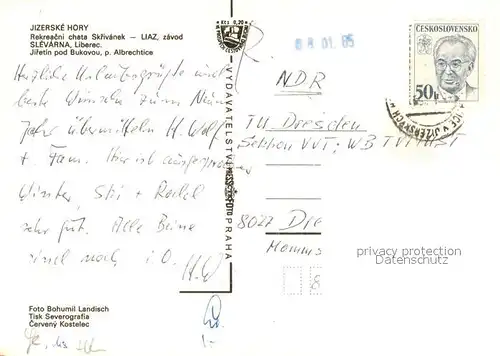 JIZERSKÉ HORY
Rekreační chata Skřivánek — LIAZ, závod
SLÉVÁRNA, Liberec.
Jiřetín pod Bukovou, p. Albrechtice
Herzliche Urlaubsgrüße und
beste Wünsche zum Neuen
Jahr übermitteln H. Wolf
+ Fam. Hier ist ausgesprochen
Winter, Ski + Rodel
sehr gut. Alle Beine
sind noch i. O.
H. W
Foto Bohumil Landisch
Tisk Severografia
Červený Kostelec
Kčs 0,20
VYDAVATELSTVÍ PRESSFOTO PRAHA
08.01.85
ČESKOSLOVENSKO
50h
V JIZERSKÝCH H
NDR
TU Dresden
Sektion VVT; WB
8027 Dre
Momms
privacy protection
watermark